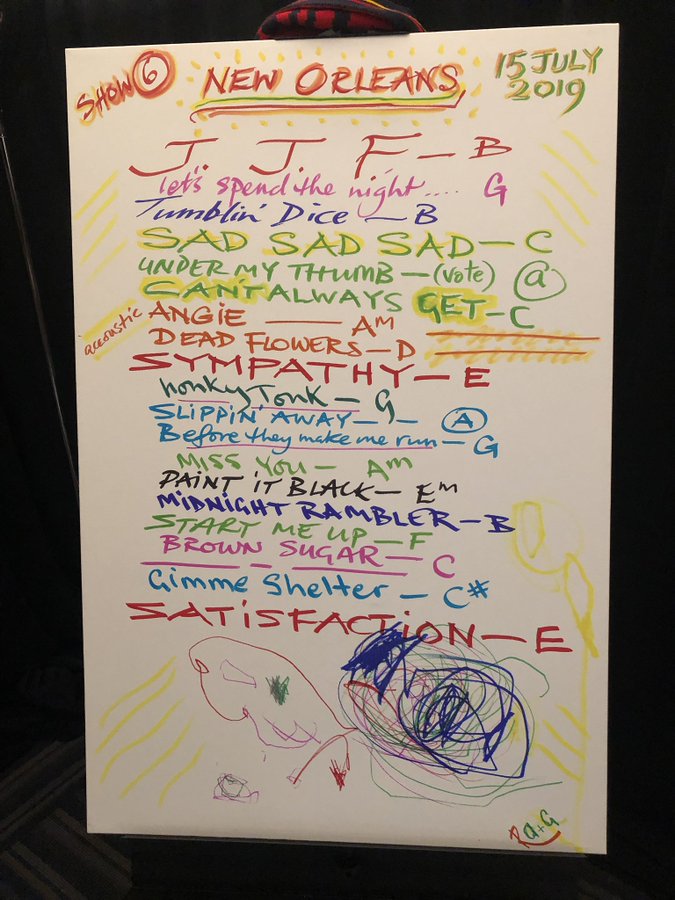 SHOW 6 NEW ORLEANS 15 JULY 2019
J. J. F – B
let's spend the night.... G
Tumblin' Dice – B
SAD SAD SAD – C
UNDER MY THUMB – (vote) a
CAN'T ALWAYS GET – C
accoustic ANGIE — Am
DEAD FLOWERS – D
SYMPATHY – E
honky Tonk – G
SLIPPIN' AWAY – – A
Before they make me run – G
MISS YOU – Am
PAINT IT BLACK – Em
MIDNIGHT RAMBLER – B
START ME UP – F
BROWN SUGAR – C
Gimme Shelter – C#
SATiSFACTiON – E